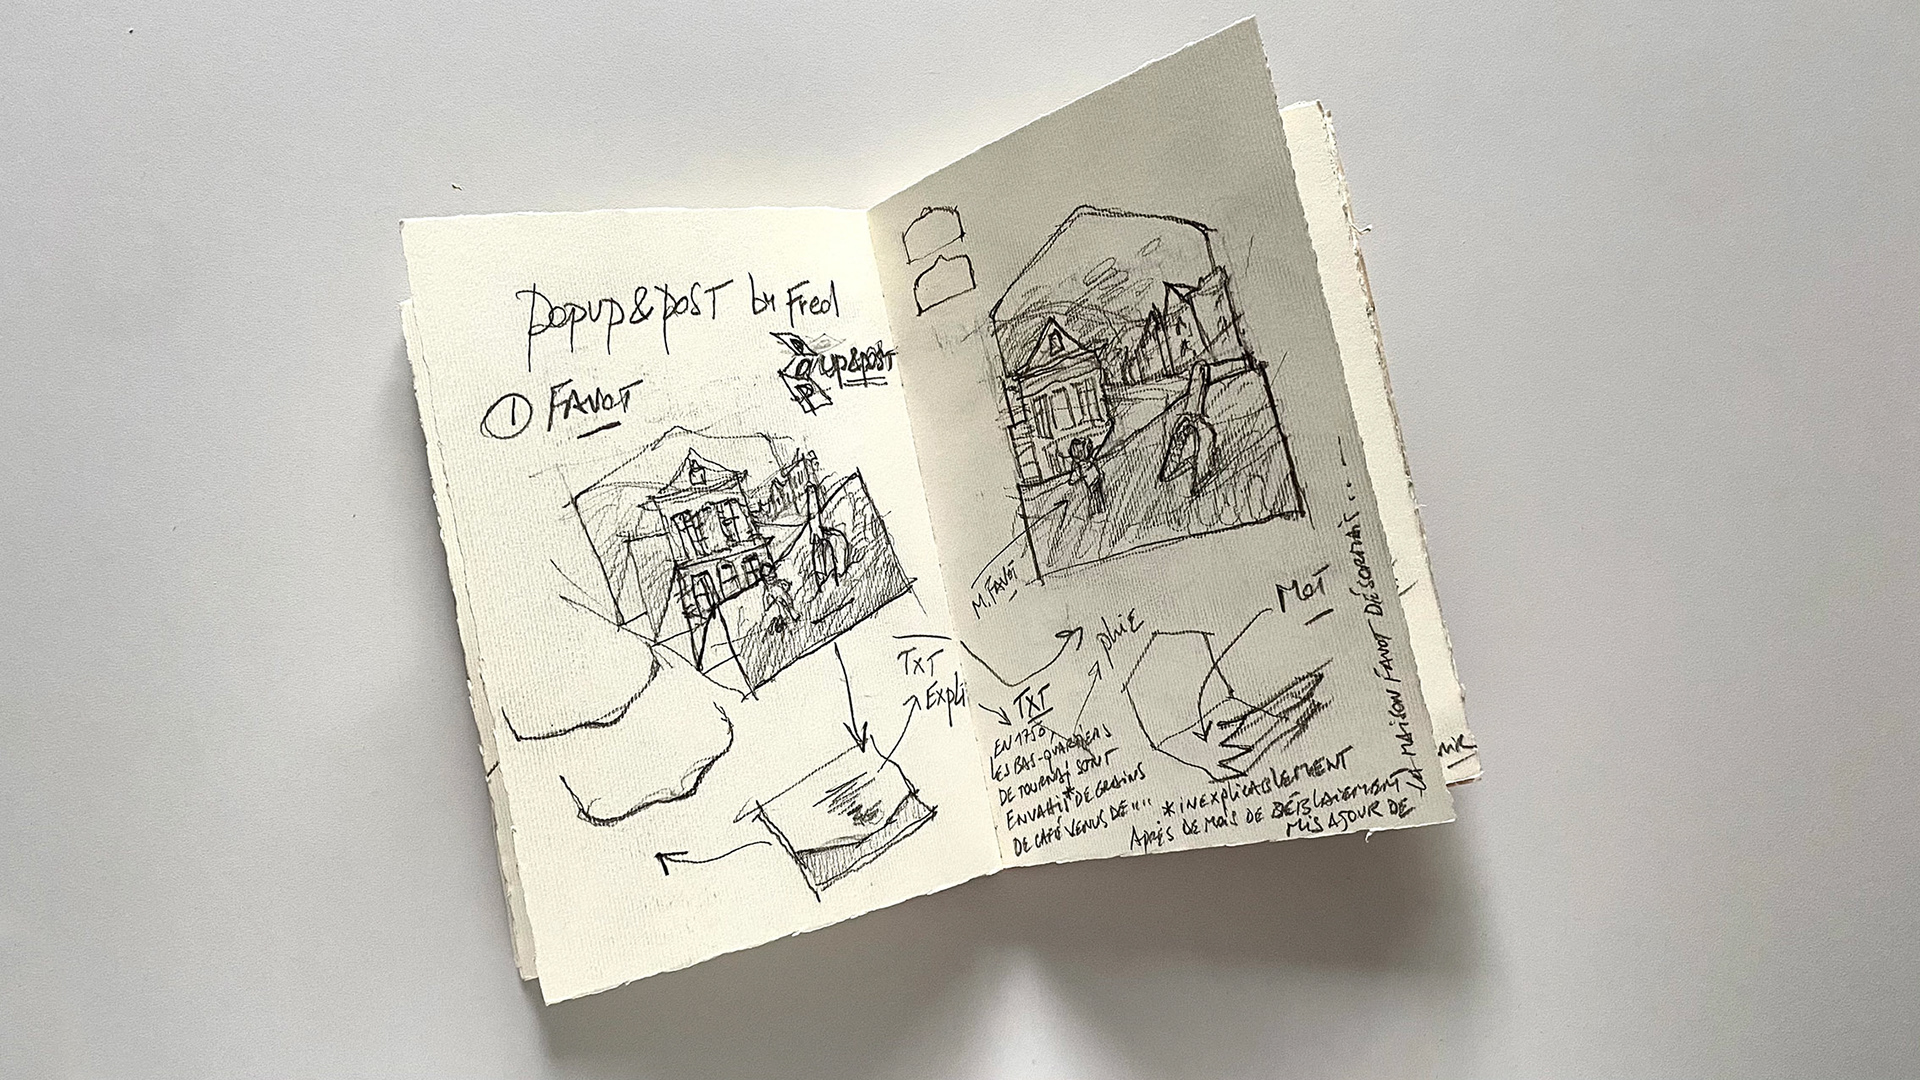 popup&post by Fred
up&post
① FAVOT
TXT
Expli
M. FAVOT
phie
MOT
TXT
EN 1750,
LES BAS-QUARTIERS
DE TOURNAI SONT
ENVAHIS* DE GRAINS
DE CAFÉ VENUS DE """
* INEXPLICABLEMENT
APRÈS DE MOIS DE DÉBLAIEMENT
MIS A JOUR DE
LA MAISON FAVOT DÉSORMAIS...